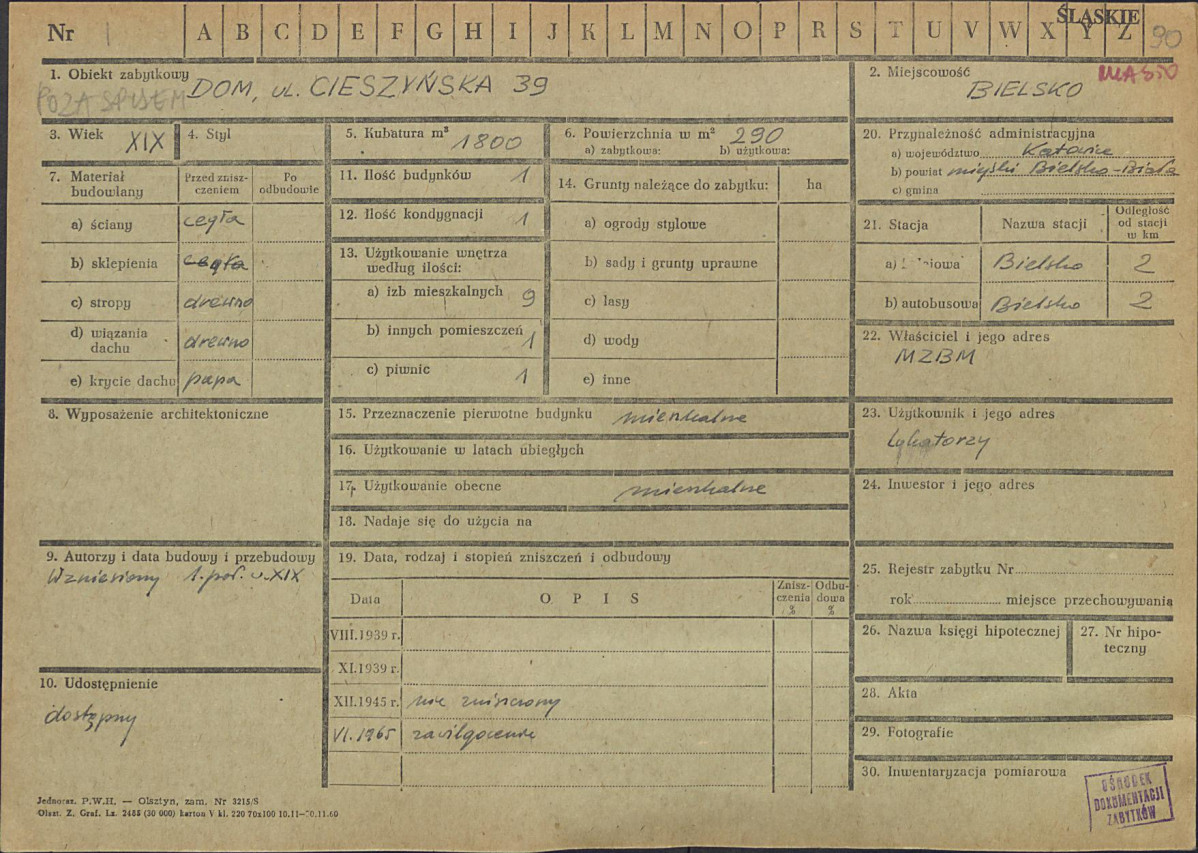 Nr A B C D E F G H I J K L M N O P R S T U V W X Y Z
ŚLĄSKIE
90
1. Obiekt zabytkowy
POZA SPISEM
DOM, UL. CIESZYŃSKA 39
2. Miejscowość
MIASTO
BIELSKO
3. Wiek
XIX
4. Styl
5. Kubatura m³
1800
6. Powierzchnia w m² 290
a) zabytkowa: b) użytkowa:
20. Przynależność administracyjna
a) województwo Katowice
b) powiat miejski Bielsko-Biała
c) gmina
7. Materiał
budowlany
Przed znisz-
czeniem
Po
odbudowie
a) ściany cegła
b) sklepienia cegła
c) stropy drewno
d) wiązania
dachu drewno
e) krycie dachu papa
11. Ilość budynków 1
12. Ilość kondygnacji 1
13. Użytkowanie wnętrza
według ilości:
a) izb mieszkalnych 9
b) innych pomieszczeń 1
c) piwnic 1
14. Grunty należące do zabytku: ha
a) ogrody stylowe
b) sady i grunty uprawne
c) lasy
d) wody
e) inne
21. Stacja
Nazwa stacji
Odległość
od stacji
w km
a) Bielsko 2
b) autobusowa Bielsko 2
22. Właściciel i jego adres
MZBM
8. Wyposażenie architektoniczne
15. Przeznaczenie pierwotne budynku mieszkalne
16. Użytkowanie w latach ubiegłych
17. Użytkowanie obecne mieszkalne
18. Nadaje się do użycia na
23. Użytkownik i jego adres
lokatorzy
24. Inwestor i jego adres
9. Autorzy i data budowy i przebudowy
Wzniesiony 1. poł. w. XIX
19. Data, rodzaj i stopień zniszczeń i odbudowy
Data
O P I S
Znisz-
czenia
%
Odbu-
dowa
%
VIII.1939 r.
XI.1939 r.
XII.1945 r. nie zniszczony
VI. 1965 zawilgocenie
25. Rejestr zabytku Nr
rok miejsce przechowywania
26. Nazwa księgi hipotecznej
27. Nr hipo-
teczny
10. Udostępnienie
dostępny
28. Akta
29. Fotografie
30. Inwentaryzacja pomiarowa
OŚRODEK
DOKUMENTACJI
ZABYTKÓW
Jednoraz. P.W.H. — Olsztyn, zam. Nr 3215/S
Olszt. Z. Graf. Lz. 2485 (30 000) karton V kl. 220 70x100 10.11—30.11.60